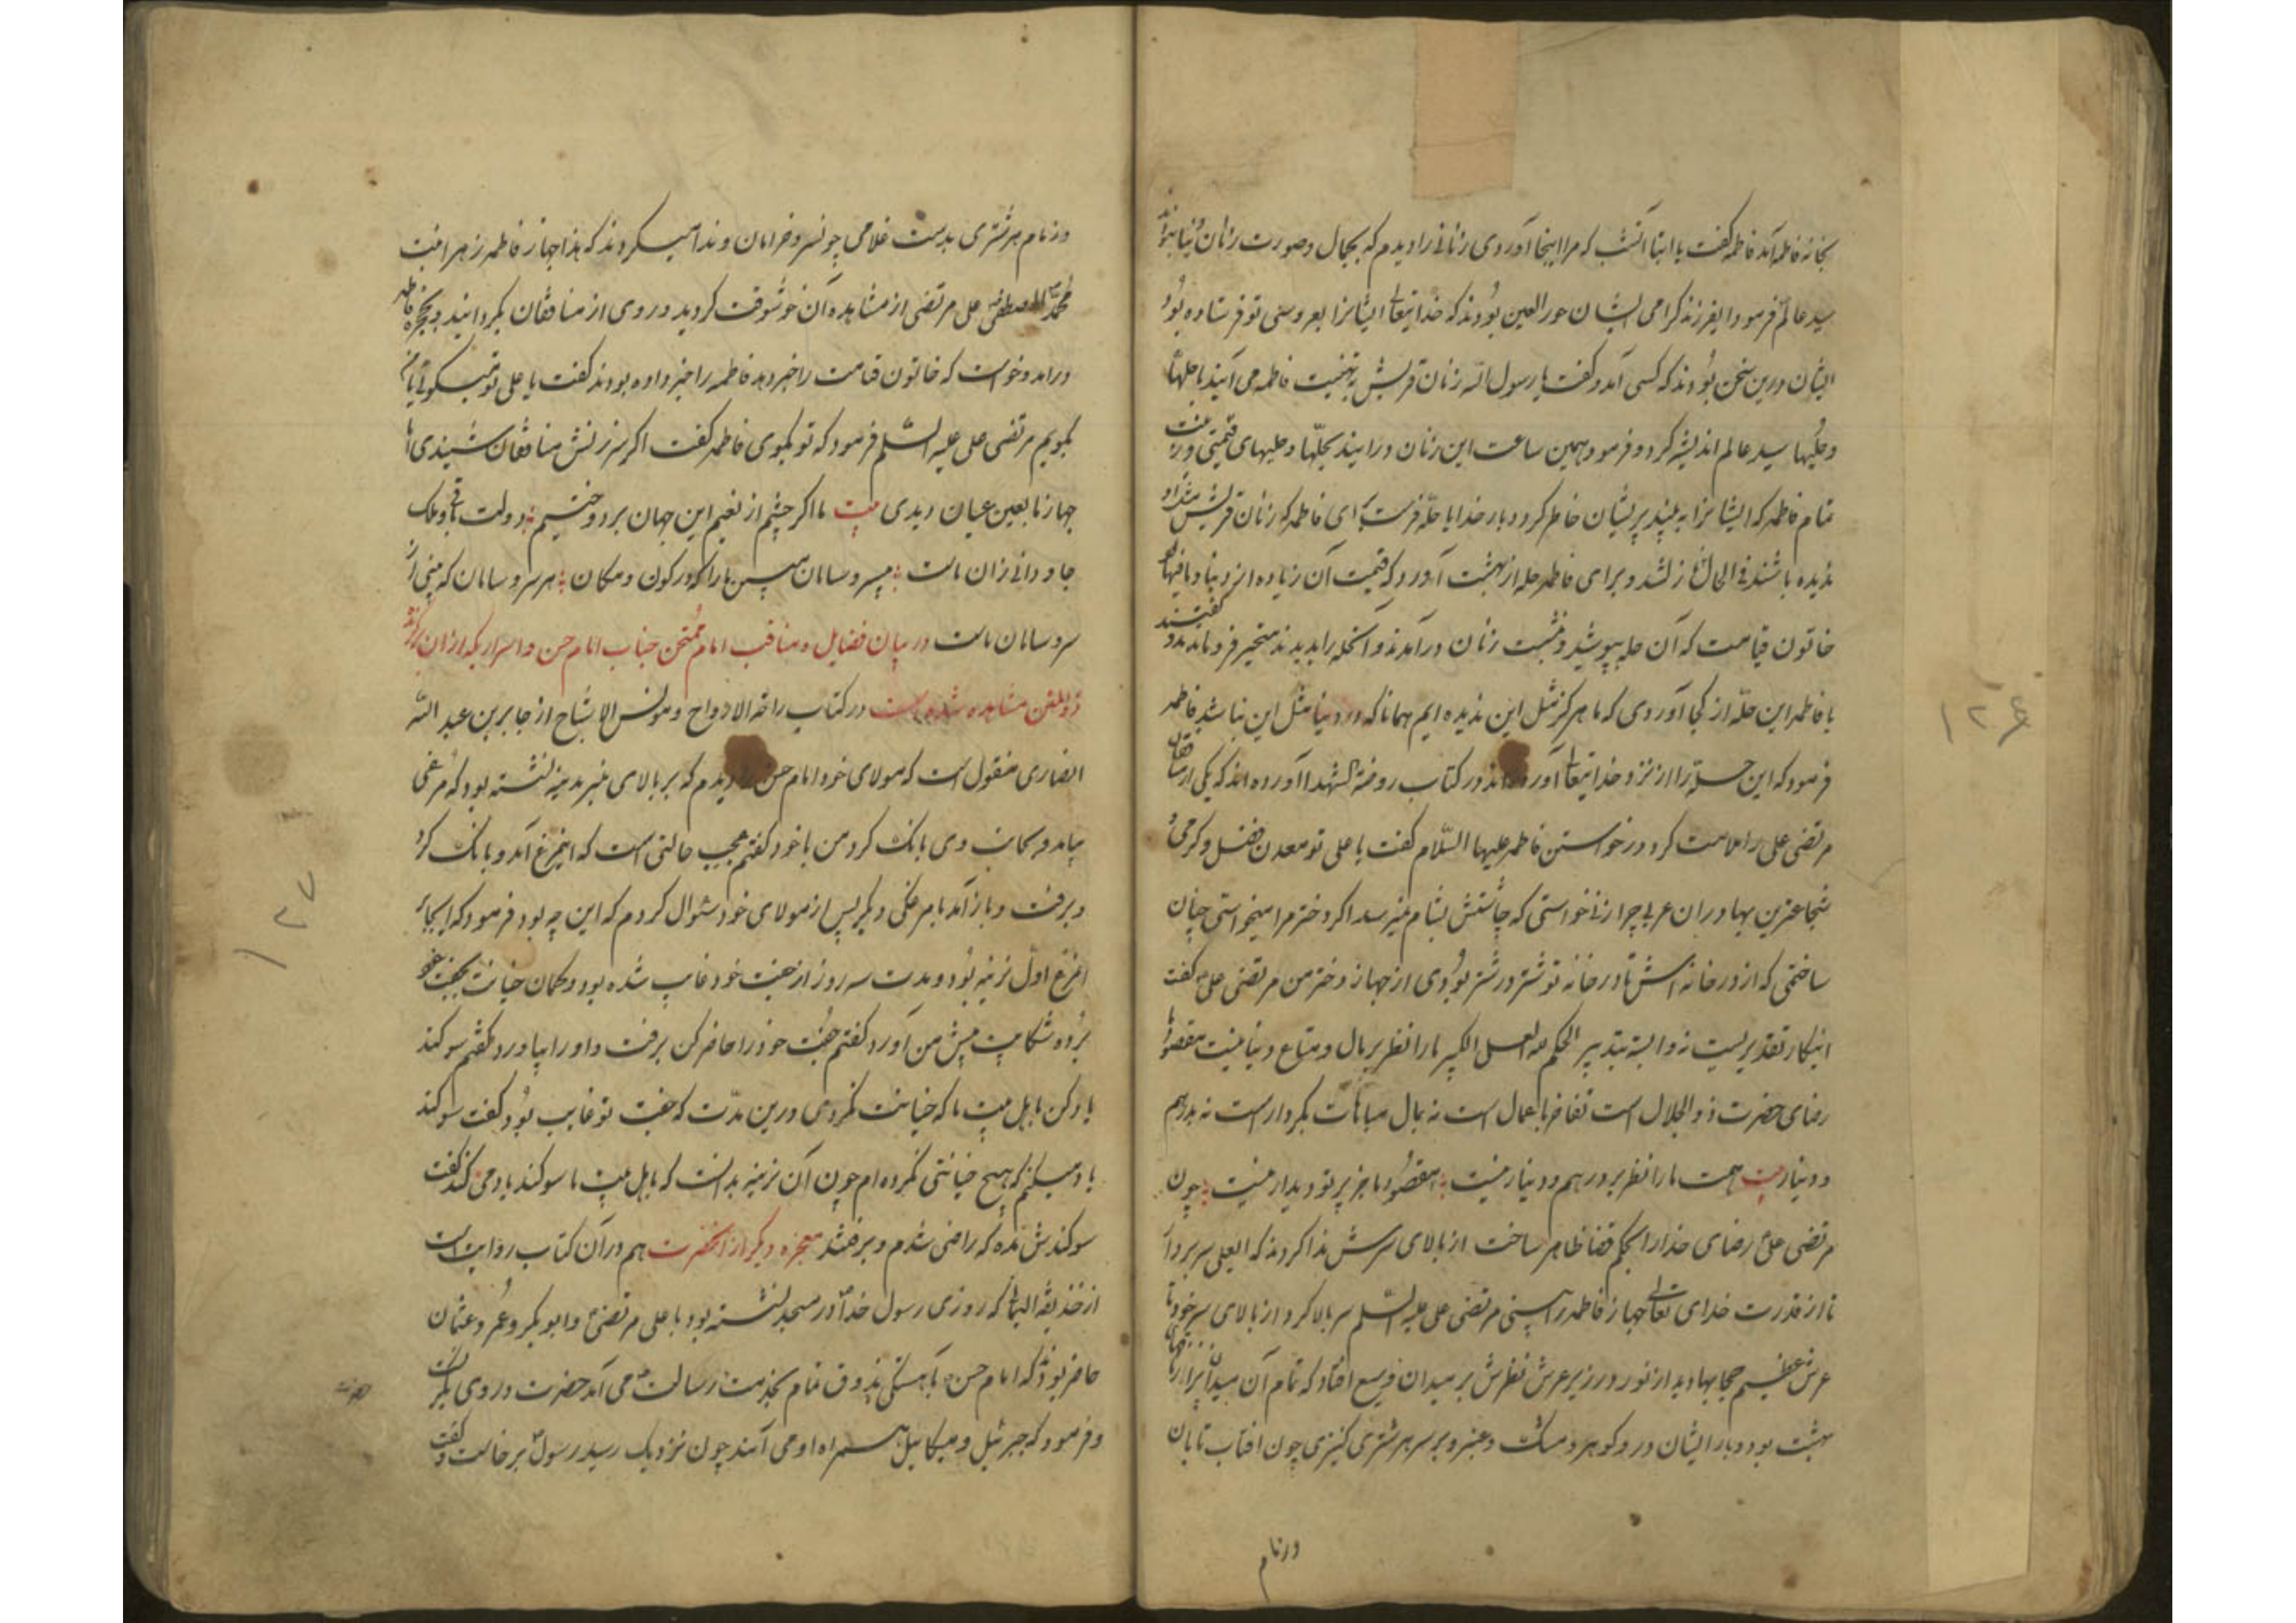 بخانه فاطمه آمد فاطمه گفت یا ابتا آنشب که مرا اینجا آوردی زنانی را دیدم که بجمال و صورت زنان دنیا نبودند
سید عالم فرمود ایفرزند گرامی ایشان حور العین بودند که خدایتعالی ایشانرا بعروسی تو فرستاده بود
ایشان درین سخن بودند که کسی آمد و گفت یا رسول الله زنان قریش به تهنیت فاطمه می آیند با حلها
و حلیها سید عالم اندیشه کرد و فرمود همین ساعت این زنان درایند بحلها و حلیهای قیمتی و زینت
تمام فاطمه که ایشانرا به بیند پریشان خاطر گردد بار خدایا حله فرست برای فاطمه که زنان قریش مثل او
ندیده باشند فی الحال نازل شد و برای فاطمه حله از بهشت آورد که قیمت آن زیاده از دنیا و ما فیها
خاتون قیامت که آن حله بپوشید و نشست زنان درآمدند و آنحله را بدیدند متحیر فرو ماندند و گفتند
یا فاطمه این حله از کجا آوردی که ما هرگز مثل این ندیده ایم همانا که در دنیا مثل این نباشد فاطمه
فرمود که این حله را از نزد خدایتعالی آورده اند در کتاب روضة الشهدا آورده اند که یکی از منافقان
مرتضی علی را ملامت کرد در خواستن فاطمه علیها السلام گفت یا علی تو معدن فضل و کرمی و
شجاعترین بهادران عربی چرا زنی خواستی که چاشتش بشام نمیرسد اگر دختر مرا میخواستی چنان
ساختمی که از در خانه اش تا در خانه تو شتر در شتر بودی از جهاز دختر من مرتضی علی گفت
اینکار تقدیریست نه وابسته بتدبیر الحکم لله العلی الکبیر ما را نظر بر مال و متاع دنیا نیست مقصود ما
رضای حضرت ذو الجلال است تفاخر باعمال است نه بمال مباهات بکردار است نه بدرهم
و دینار بیت همت ما را نظر بر درهم و دینار نیست مقصود ما جز پرتو دیدار نیست چون
مرتضی علی رضای خدا را بحکم قضا ظاهر ساخت از بالای سرش ندا کردند که ایعلی سر بردار
تا از قدرت خدای تعالی جهاز فاطمه را ببینی مرتضی علی علیه السلم سر بالا کرد از بالای سر خود تا
عرش عظیم حجابها دید از نور و در زیر عرش نظرش بر میدان وسیع افتاد که تمام آن میدان پر از
بهشت بود و بار ایشان در و گوهر و مشک و عنبر و بر سر هر شتری کنیزی چون افتاب تابان
و زمام
۱۲۶
و زمام هر شتری بدست غلامی چو نسر و خرامان و ندا میکردند که هذا جهاز فاطمه زهرا بنت
محمد المصطفی علی مرتضی از مشاهده آن خوشوقت گردید و روی از منافقان بگردانید و بحجره فاطمه
درامد و خواست که خاتون قیامت را خبر دهد فاطمه را خبر داده بودند گفت یا علی تو میگوئی یا من
بگویم مرتضی علی علیه السلم فرمود که تو بگوی فاطمه گفت اگر سرزنش منافقان شنیدی اما
جهاز ما بعین عیان دیدی بیت ما اگر چشم از نعیم این جهان بر دوختیم دولت باقی و ملک
جاودانی زان ماست بیسر و سامان مبین ما را که در کون و مکان هر سر و سامان که بینی آن
سر و سامان ماست در بیان فضایل و مناقب امام ممتحن جناب امام حسن و اسراریکه ازان برگزیده
ذوالمنن مشاهده شده است در کتاب راحة الارواح و مونس الاشباح از جابر بن عبد الله
انصاری منقول است که مولای خود امام حسن را دیدم که بر بالای منبر مدینه نشسته بود که مرغی
بیامد و بجانب وی بانگ کرد من با خود گفتم عجیب حالتی است که اینمرغ آمد و بانگ کرد
و برفت و باز آمد با مرغکی دیگر پس از مولای خود سئوال کردم که این چه بود فرمود که ایجابر
امرغ اول نرینه بود و مدت سه روز از جفت خود غایب شده بود و گمان خیانت بجفت خود
برده و شکایت پیش من آورد گفتم جفت خود را حاضر کن برفت و او را بیاورد گفتم سوگند
یاد کن باهل بیت ما که خیانت نکردی درین مدت که جفت تو غایب بود گفت سوگند
یاد میکنم که هیچ خیانتی نکرده ام چون آن نرینه بدانست که باهل بیت ما سوگند یاد می کند گفت
سوگندش مده که راضی شدم و برفتند معجزه دیگر از آنحضرت هم در آن کتاب روایت است
از حذیفة الیمانی که روزی رسول خدا در مسجد نشسته بود با علی مرتضی و ابو بکر و عمر و عثمان
حاضر بودند که امام حسن بآهستگی بذوق تمام بخدمت رسالت می آمد حضرت در وی نگریست
و فرمود که جبرئیل و میکائیل همراه او می آیند چون نزدیک رسید رسول برخاست و گفت
۱۲۷